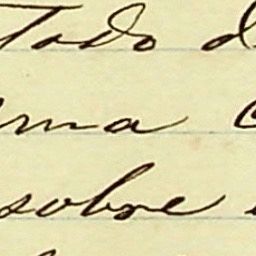 Todo d
rma
sobre